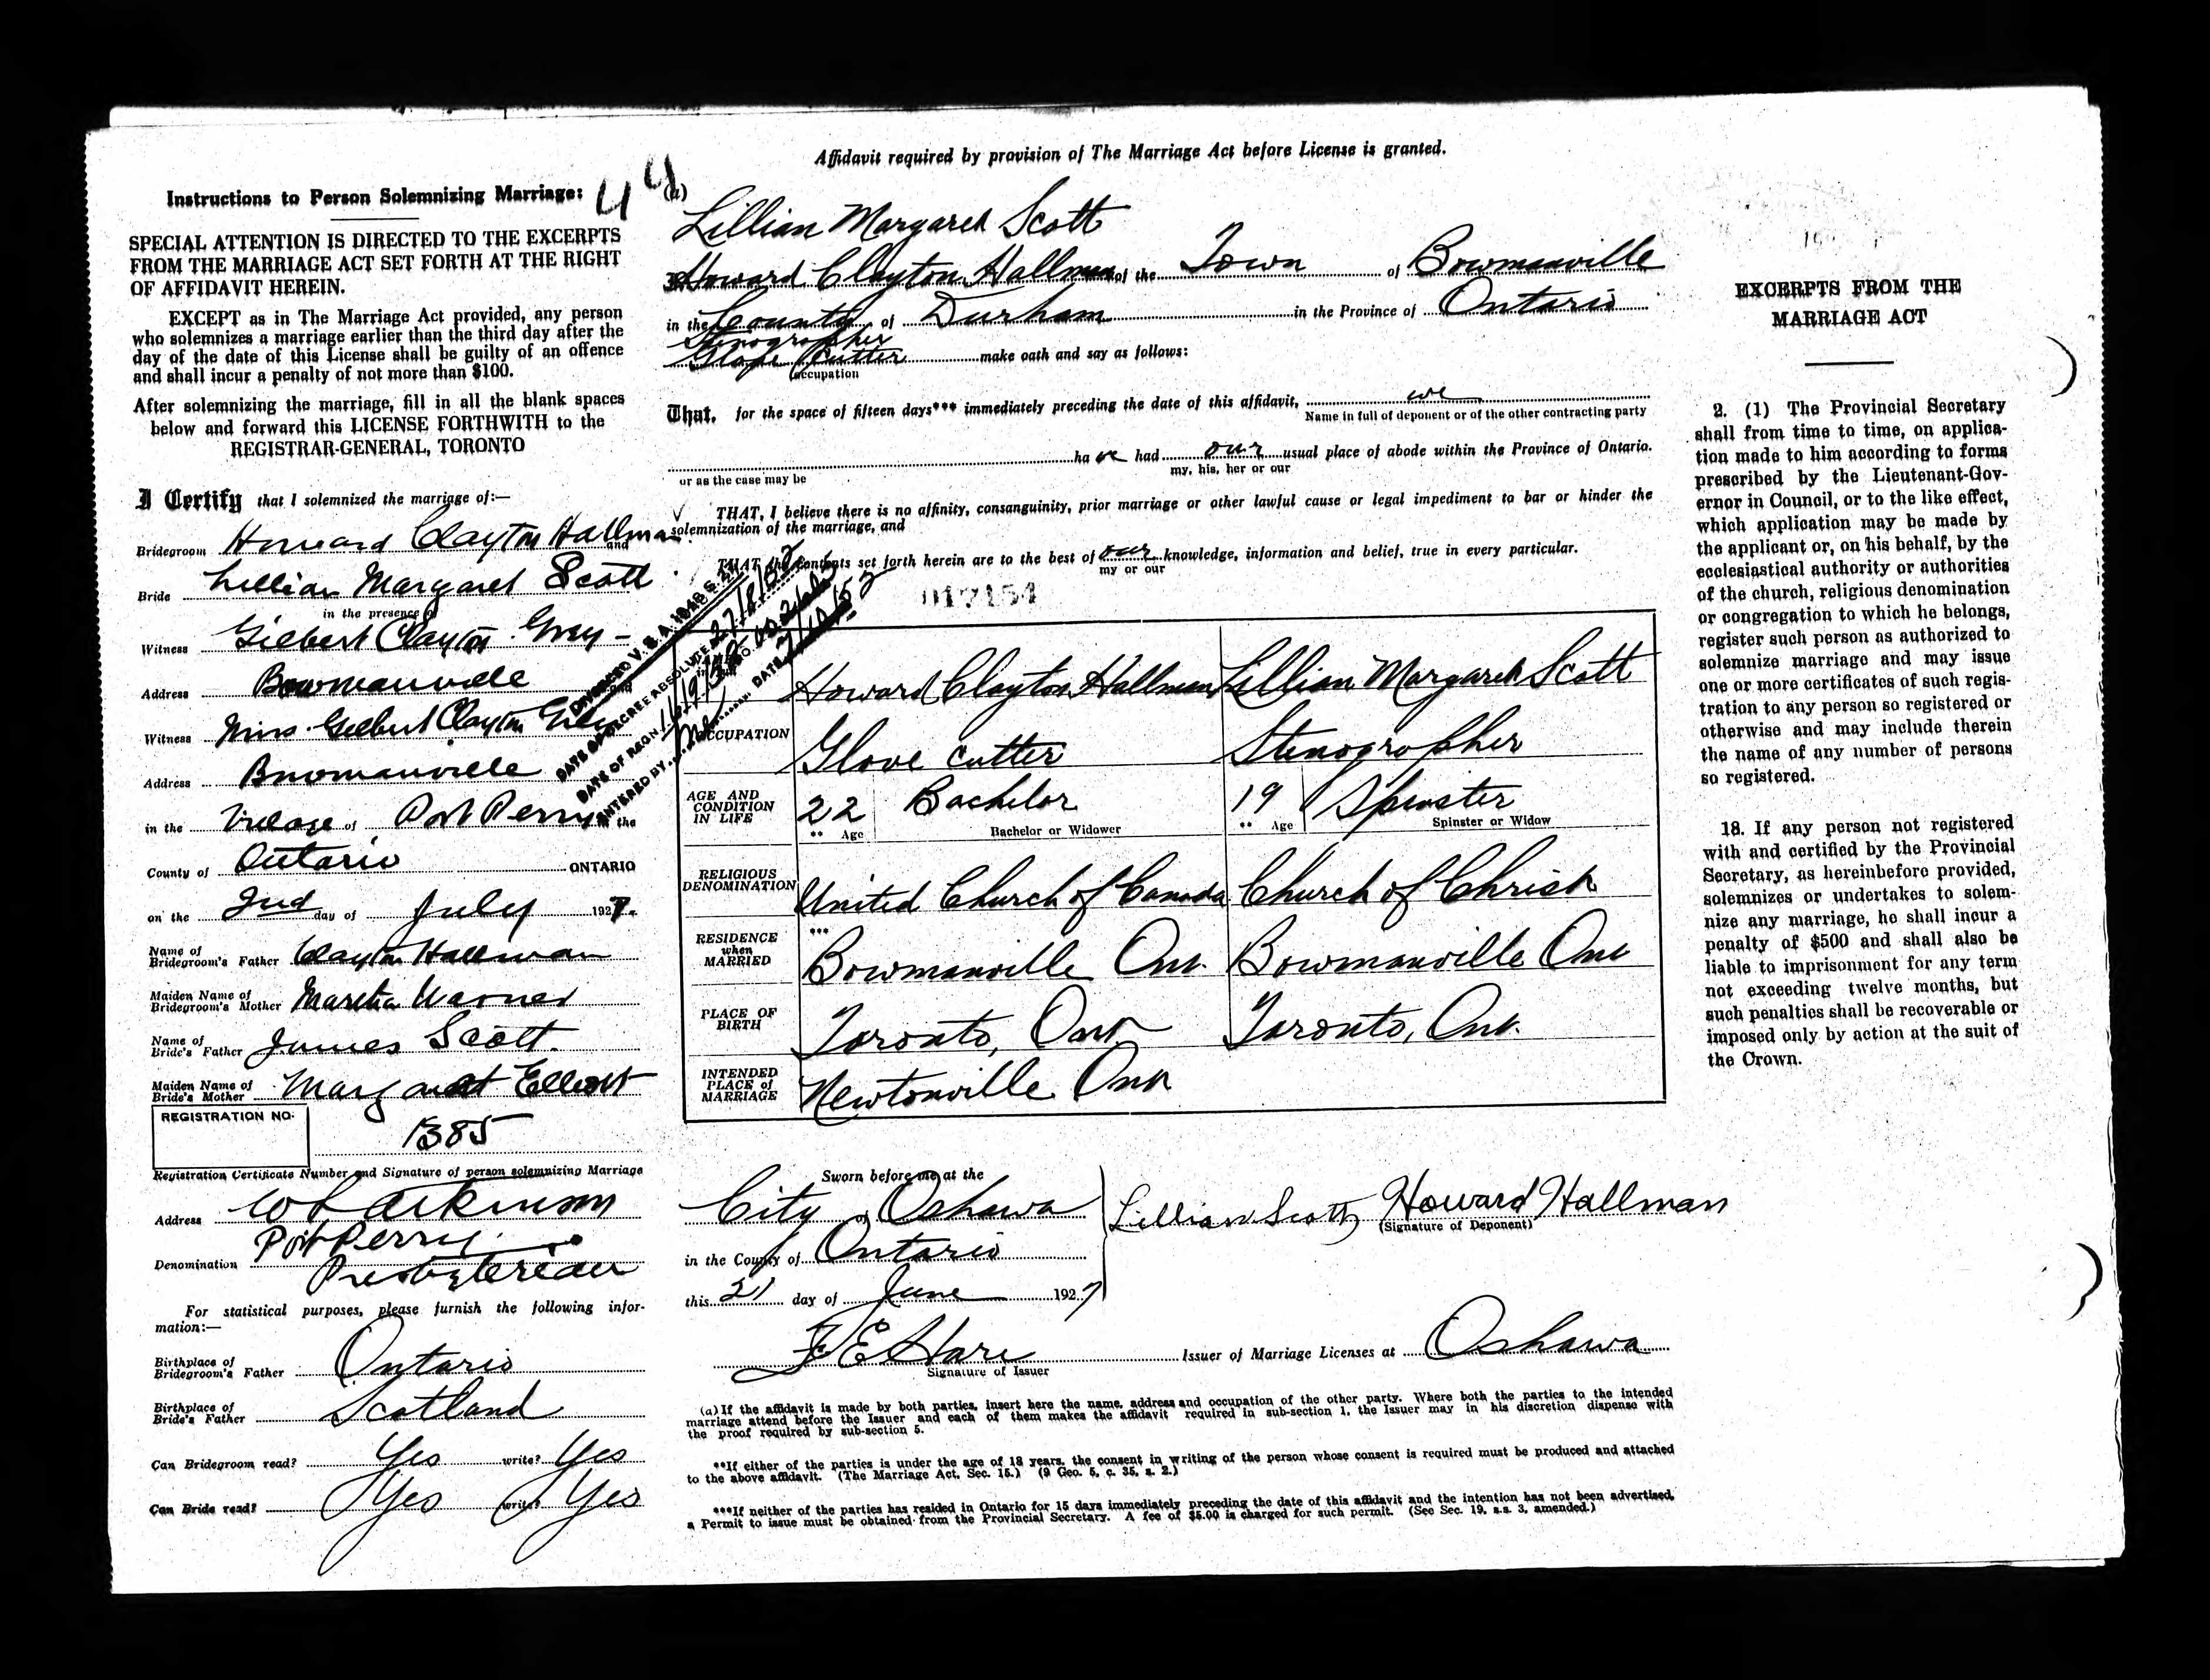 Affidavit required by provision of The Marriage Act before License is granted.
Instructions to Person Solemnizing Marriage:
44
SPECIAL ATTENTION IS DIRECTED TO THE EXCERPTS
FROM THE MARRIAGE ACT SET FORTH AT THE RIGHT
OF AFFIDAVIT HEREIN.
EXCEPT as in The Marriage Act provided, any person
who solemnizes a marriage earlier than the third day after the
day of the date of this License shall be guilty of an offence
and shall incur a penalty of not more than $100.
After solemnizing the marriage, fill in all the blank spaces
below and forward this LICENSE FORTHWITH to the
REGISTRAR-GENERAL, TORONTO
I Certify that I solemnized the marriage of:—
Bridegroom Howard Clayton Hallman and
Bride Lillian Margaret Scott
in the presence of
Witness Gilbert Clayton
Address Bowmanville
Witness Mrs. Gilbert Clayton
Address Bowmanville
in the Village of Port Perry in the
County of Ontario ONTARIO
on the 2nd day of July 1927.
Name of Bridegroom's Father Clayton Hallman
Maiden Name of Bridegroom's Mother Martha
Name of Bride's Father James Scott.
Maiden Name of Bride's Mother Margaret Elliott
REGISTRATION NO.
1385
Registration Certificate Number and Signature of person solemnizing Marriage
W L Atkinson
Address Port Perry.
Denomination Presbyterian
For statistical purposes, please furnish the following infor-
mation:—
Birthplace of Bridegroom's Father Ontario
Birthplace of Bride's Father Scotland
Can Bridegroom read? Yes write? Yes
Can Bride read? Yes write? Yes
(a)
Lillian Margaret Scott
I Howard Clayton Hallman of the Town of Bowmanville
in the County of Durham in the Province of Ontario
Stenographer
Glove Cutter make oath and say as follows:
Occupation
That, for the space of fifteen days*** immediately preceding the date of this affidavit, we
Name in full of deponent or of the other contracting party
have had our usual place of abode within the Province of Ontario.
or as the case may be my, his, her or our
THAT, I believe there is no affinity, consanguinity, prior marriage or other lawful cause or legal impediment to bar or hinder the
solemnization of the marriage, and
THAT the contents set forth herein are to the best of our knowledge, information and belief, true in every particular.
my or our
017154
DIVORCED V.S.A. 1948 S.
DATE OF DECREE ABSOLUTE
DATE OF REGN.
ENTERED BY DATE
Howard Clayton Hallman Lillian Margaret Scott
OCCUPATION Glove cutter Stenographer
AGE AND CONDITION IN LIFE 22 Bachelor 19 Spinster
** Age Bachelor or Widower ** Age Spinster or Widow
RELIGIOUS DENOMINATION United Church of Canada Church of Christ
RESIDENCE when MARRIED *** Bowmanville Ont. Bowmanville Ont
PLACE OF BIRTH Toronto, Ont. Toronto, Ont.
INTENDED PLACE of MARRIAGE Newtonville Ont
Sworn before me at the
City of Oshawa
in the County of Ontario
this 21 day of June 1927
Lillian Scott Howard Hallman
(Signature of Deponent)
F E Hare Issuer of Marriage Licenses at Oshawa
Signature of Issuer
(a) If the affidavit is made by both parties, insert here the name, address and occupation of the other party. Where both the parties to the intended
marriage attend before the Issuer and each of them makes the affidavit required in sub-section 1, the Issuer may in his discretion dispense with
the proof required by sub-section 5.
**If either of the parties is under the age of 18 years, the consent in writing of the person whose consent is required must be produced and attached
to the above affidavit. (The Marriage Act, Sec. 15.) (9 Geo. 5, c. 35, s. 2.)
***If neither of the parties has resided in Ontario for 15 days immediately preceding the date of this affidavit and the intention has not been advertised,
a Permit to issue must be obtained from the Provincial Secretary. A fee of $5.00 is charged for such permit. (See Sec. 19, s.s. 3, amended.)
EXCERPTS FROM THE
MARRIAGE ACT
2. (1) The Provincial Secretary
shall from time to time, on applica-
tion made to him according to forms
prescribed by the Lieutenant-Gov-
ernor in Council, or to the like effect,
which application may be made by
the applicant or, on his behalf, by the
ecclesiastical authority or authorities
of the church, religious denomination
or congregation to which he belongs,
register such person as authorized to
solemnize marriage and may issue
one or more certificates of such regis-
tration to any person so registered or
otherwise and may include therein
the name of any number of persons
so registered.
18. If any person not registered
with and certified by the Provincial
Secretary, as hereinbefore provided,
solemnizes or undertakes to solem-
nize any marriage, he shall incur a
penalty of $500 and shall also be
liable to imprisonment for any term
not exceeding twelve months, but
such penalties shall be recoverable or
imposed only by action at the suit of
the Crown.